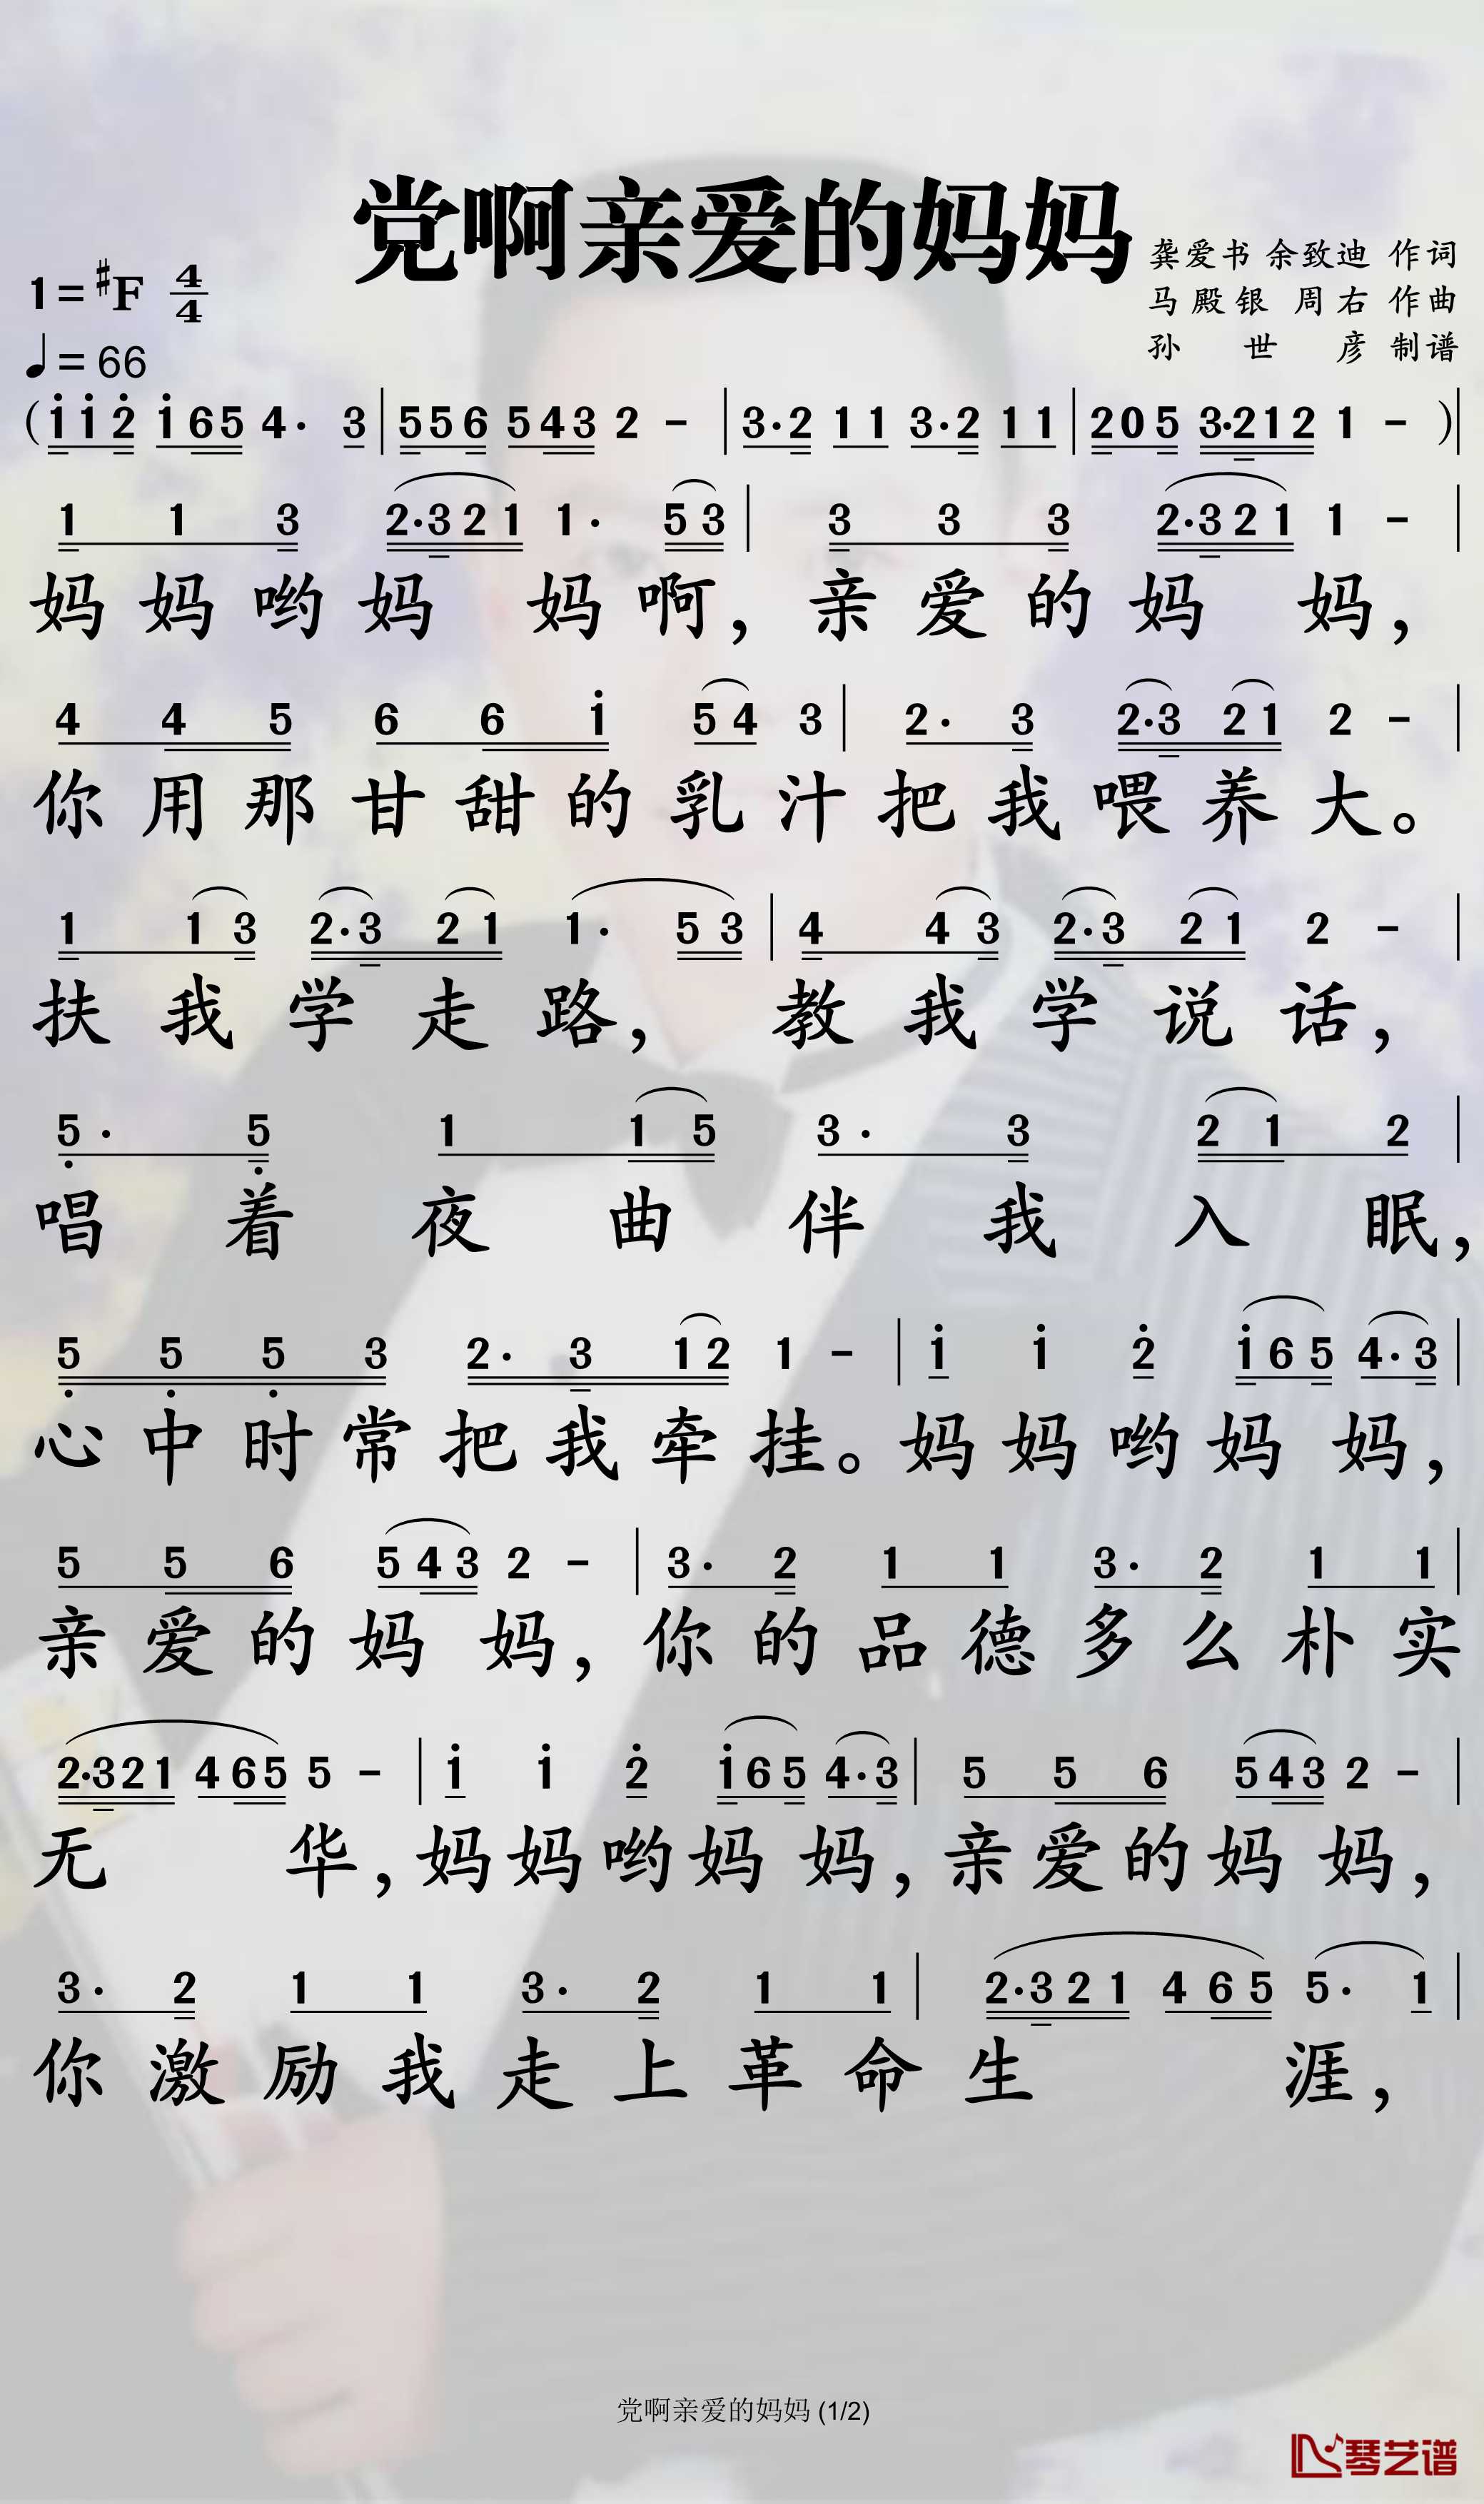 党啊亲爱的妈妈
龚爱书 余致迪 作词
1=♯F 4/4
马殿银 周右 作曲
♩=66
孙世彦 制谱
(i̇ i̇ 2̇ i̇ 6 5 4· 3 | 5 5 6 5 4 3 2 - | 3· 2 1 1 3· 2 1 1 | 2 0 5 3· 2 1 2 1 - )|
1 1 3 2· 3 2 1 1· 5 3 | 3 3 3 2· 3 2 1 1 - |
妈妈哟妈妈啊，亲爱的妈妈，
4 4 5 6 6 i̇ 5 4 3 | 2· 3 2· 3 2 1 2 - |
你用那甘甜的乳汁把我喂养大。
1 1 3 2· 3 2 1 1· 5 3 | 4 4 3 2· 3 2 1 2 - |
扶我学走路，教我学说话，
5̣· 5̣ 1 1 5 3· 3 2 1 2 |
唱着夜曲伴我入眠，
5̣ 5̣ 5̣ 3 2· 3 1 2 1 - | i̇ i̇ 2̇ i̇ 6 5 4· 3 |
心中时常把我牵挂。妈妈哟妈妈，
5 5 6 5 4 3 2 - | 3· 2 1 1 3· 2 1 1 |
亲爱的妈妈，你的品德多么朴实
2· 3 2 1 4 6 5 5 - | i̇ i̇ 2̇ i̇ 6 5 4· 3 | 5 5 6 5 4 3 2 - |
无华，妈妈哟妈妈，亲爱的妈妈，
3· 2 1 1 3· 2 1 1 | 2· 3 2 1 4 6 5 5· 1 |
你激励我走上革命生涯，
党啊亲爱的妈妈 (1/2)
琴艺谱